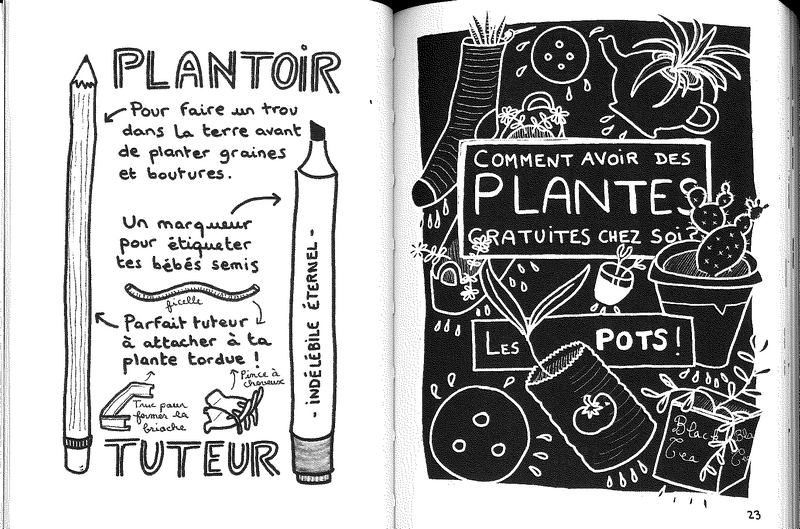 PLANTOIR
Pour faire un trou
dans la terre avant
de planter graines
et boutures.
Un marqueur
pour étiqueter
tes bébés semis
ficelle
Parfait tuteur
à attacher à ta
plante tordue !
Pince à
cheveux
Truc pour
fermer la
brioche
TUTEUR
- INDÉLÉBILE ÉTERNEL -
COMMENT AVOIR DES
PLANTES
GRATUITES CHEZ SOI?
LES POTS!
Black
Tea
23